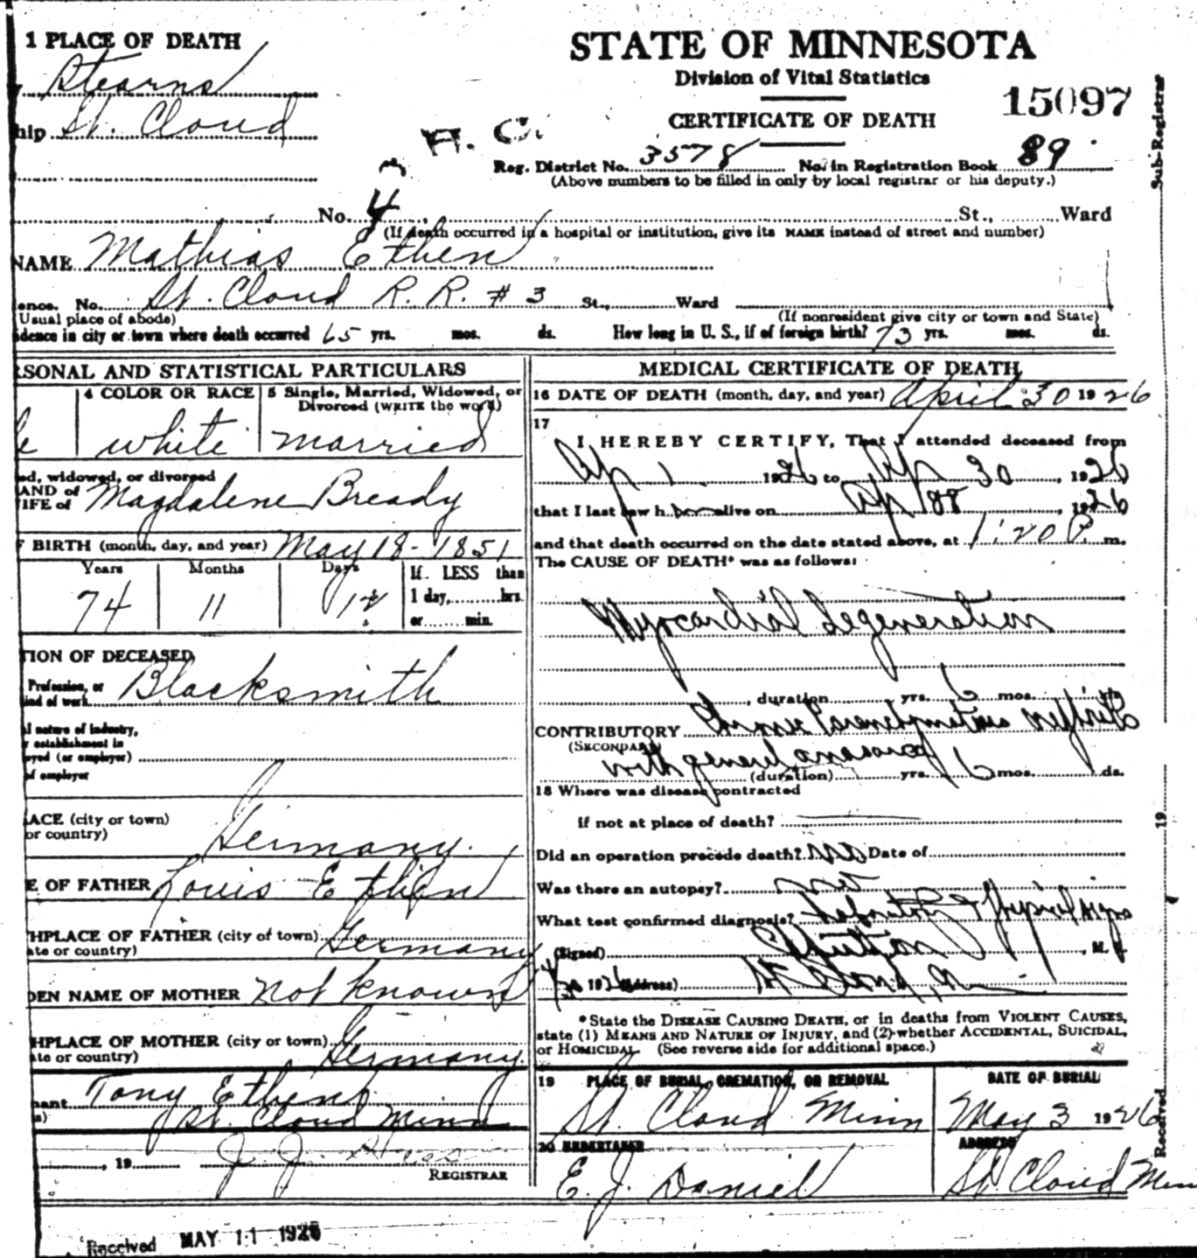 1 PLACE OF DEATH
Stearns
hip St. Cloud
STATE OF MINNESOTA
Division of Vital Statistics
CERTIFICATE OF DEATH
15097
H. C.
Reg. District No. 3578 No. in Registration Book 89
(Above numbers to be filled in only by local registrar or his deputy.)
Sub-Registrar
No. 4 St., Ward
(If death occurred in a hospital or institution, give its NAME instead of street and number)
NAME Mathias Ethen
ence. No. St. Cloud R. R. # 3 St., Ward
Usual place of abode) (If nonresident give city or town and State)
idence in city or town where death occurred 65 yrs. mos. ds. How long in U. S., if of foreign birth? 73 yrs. mos. ds.
SONAL AND STATISTICAL PARTICULARS
4 COLOR OR RACE 5 Single, Married, Widowed, or
Divorced (WRITE the word)
e white married
ed, widowed, or divorced
AND of
IFE of Magdalene Bready
F BIRTH (month, day, and year) May 18 - 1851
Years Months Days If LESS than
74 11 12 1 day, hrs.
or min.
TION OF DECEASED
Profession, or
kind of work Blacksmith
l nature of industry,
r establishment in
oyed (or employer)
of employer
ACE (city or town)
or country) Germany.
E OF FATHER Louis Ethen
HPLACE OF FATHER (city of town)
ate or country) Germany
DEN NAME OF MOTHER not known
HPLACE OF MOTHER (city or town)
ate or country) Germany.
ant Tony Ethen
s) St. Cloud Minn
, 19 J. J.
REGISTRAR
Received MAY 11 1926
MEDICAL CERTIFICATE OF DEATH
16 DATE OF DEATH (month, day, and year) April 30 1926
17
I HEREBY CERTIFY, That I attended deceased from
Ap 1 1926 to Ap 30, 1926
that I last saw h alive on Ap 1926
and that death occurred on the date stated above, at 1:20 P. m.
The CAUSE OF DEATH* was as follows:
Myocardial degeneration
, duration yrs. 6 mos. ds.
CONTRIBUTORY Chronic Parenchymatous nephritis
(SECONDARY)
with general anasarca
(duration) yrs. 6 mos. ds.
18 Where was disease contracted
if not at place of death?
Did an operation precede death? no Date of
Was there an autopsy? no
What test confirmed diagnosis? Laboratory & Physical signs
(Signed) , M. D.
1926 (Address) St Cloud,
*State the DISEASE CAUSING DEATH, or in deaths from VIOLENT CAUSES,
state (1) MEANS AND NATURE OF INJURY, and (2) whether ACCIDENTAL, SUICIDAL,
or HOMICIDAL. (See reverse side for additional space.)
19 PLACE OF BURIAL, CREMATION, OR REMOVAL DATE OF BURIAL
St. Cloud Minn May 3 1926
20 UNDERTAKER ADDRESS
E. J. Daniel St. Cloud Minn
19
Received